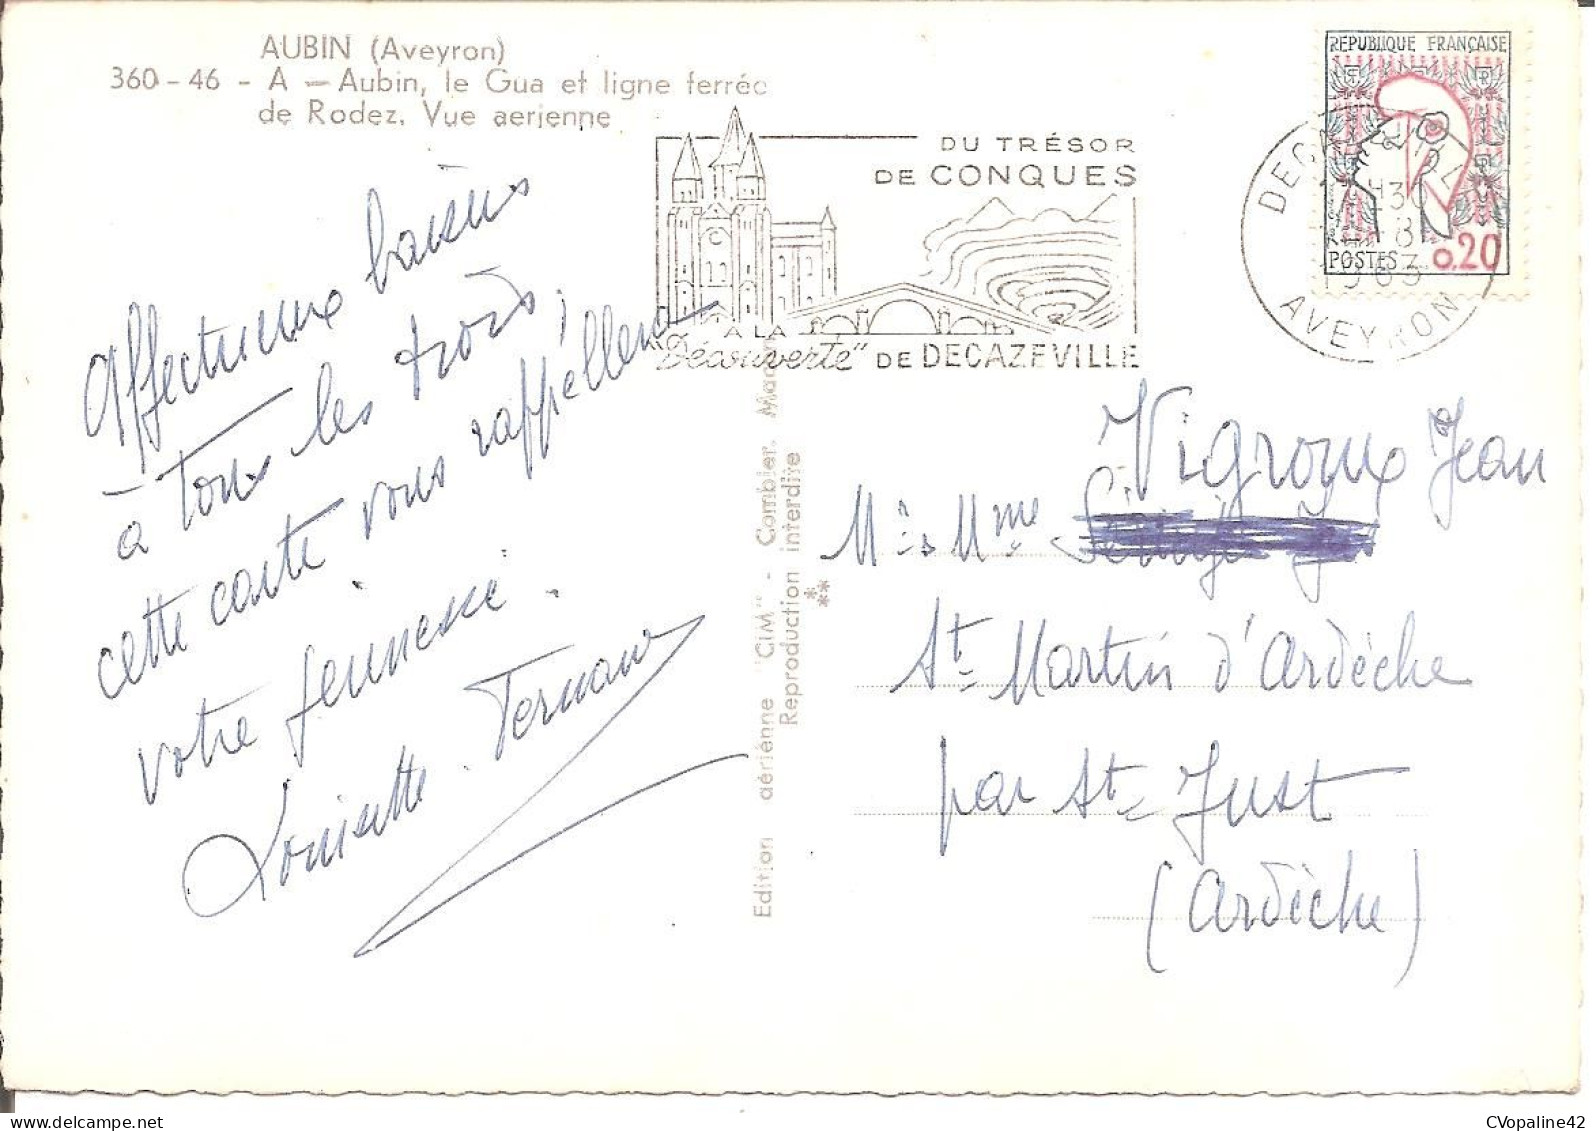 AUBIN (Aveyron)
360-46 - A - Aubin, le Gua et ligne ferrée
de Rodez. Vue aerienne
Affectueux baisers
à tous les trois,
cette carte vous rappellent
votre jeunesse.
Louisette Fernand
DU TRÉSOR
DE CONQUES
À LA
"Découverte" DE DECAZEVILLE
DECAZEVILLE
17H30
8
1963
AVEYRON
REPUBLIQUE FRANÇAISE
RF
POSTES 0,20
Edition aérienne "CIM" - Combier, Macon
Reproduction interdite
Vigroux Jean
Mr & Mme
St Martin d'Ardèche
par St Just
(Ardèche)
CVopaline42